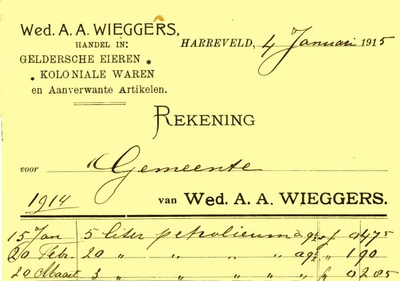 Wed. A. A. WIEGGERS,
HANDEL IN:
GELDERSCHE EIEREN
KOLONIALE WAREN
en Aanverwante Artikelen.
HARREVELD, 4 Januari 1915
REKENING
voor Gemeente
1914 van Wed. A. A. WIEGGERS.
15 Jan 5 liter petrolieum a 9½ f 0 475
20 Febr. 20 " " a 9½ " 1 90
20 Maart 3 " " " " f 0 285